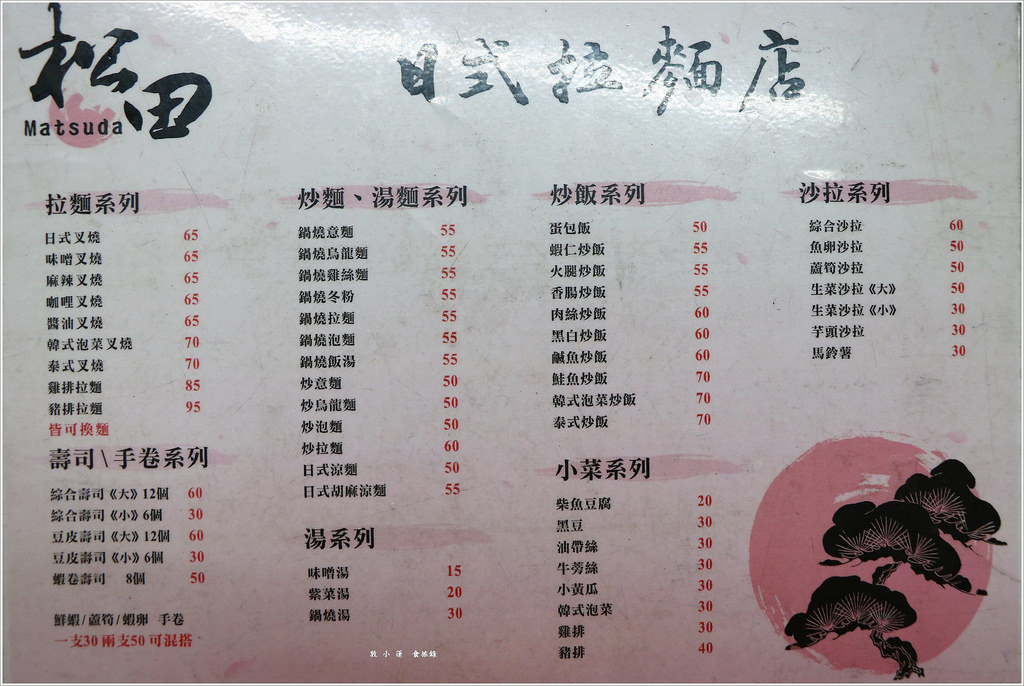 松田
Matsuda
日式拉麵店
拉麵系列
日式叉燒 65
味噌叉燒 65
麻辣叉燒 65
咖哩叉燒 65
醬油叉燒 65
韓式泡菜叉燒 70
泰式叉燒 70
雞排拉麵 85
豬排拉麵 95
皆可換麵
壽司\手卷系列
綜合壽司《大》12個 60
綜合壽司《小》6個 30
豆皮壽司《大》12個 60
豆皮壽司《小》6個 30
蝦卷壽司 8個 50
鮮蝦/蘆筍/蝦卵 手卷
一支30 兩支50 可混搭
炒麵、湯麵系列
鍋燒意麵 55
鍋燒烏龍麵 55
鍋燒雞絲麵 55
鍋燒冬粉 55
鍋燒拉麵 55
鍋燒泡麵 55
鍋燒飯湯 55
炒意麵 50
炒烏龍麵 50
炒泡麵 50
炒拉麵 60
日式涼麵 50
日式胡麻涼麵 55
湯系列
味噌湯 15
紫菜湯 20
鍋燒湯 30
炒飯系列
蛋包飯 50
蝦仁炒飯 55
火腿炒飯 55
香腸炒飯 55
肉絲炒飯 60
黑白炒飯 60
鹹魚炒飯 60
鮭魚炒飯 70
韓式泡菜炒飯 70
泰式炒飯 70
小菜系列
柴魚豆腐 20
黑豆 30
油帶絲 30
牛蒡絲 30
小黃瓜 30
韓式泡菜 30
雞排 30
豬排 40
沙拉系列
綜合沙拉 60
魚卵沙拉 50
蘆筍沙拉 50
生菜沙拉《大》 50
生菜沙拉《小》 30
芋頭沙拉 30
馬鈴薯 30
敦小蓮 食旅錄